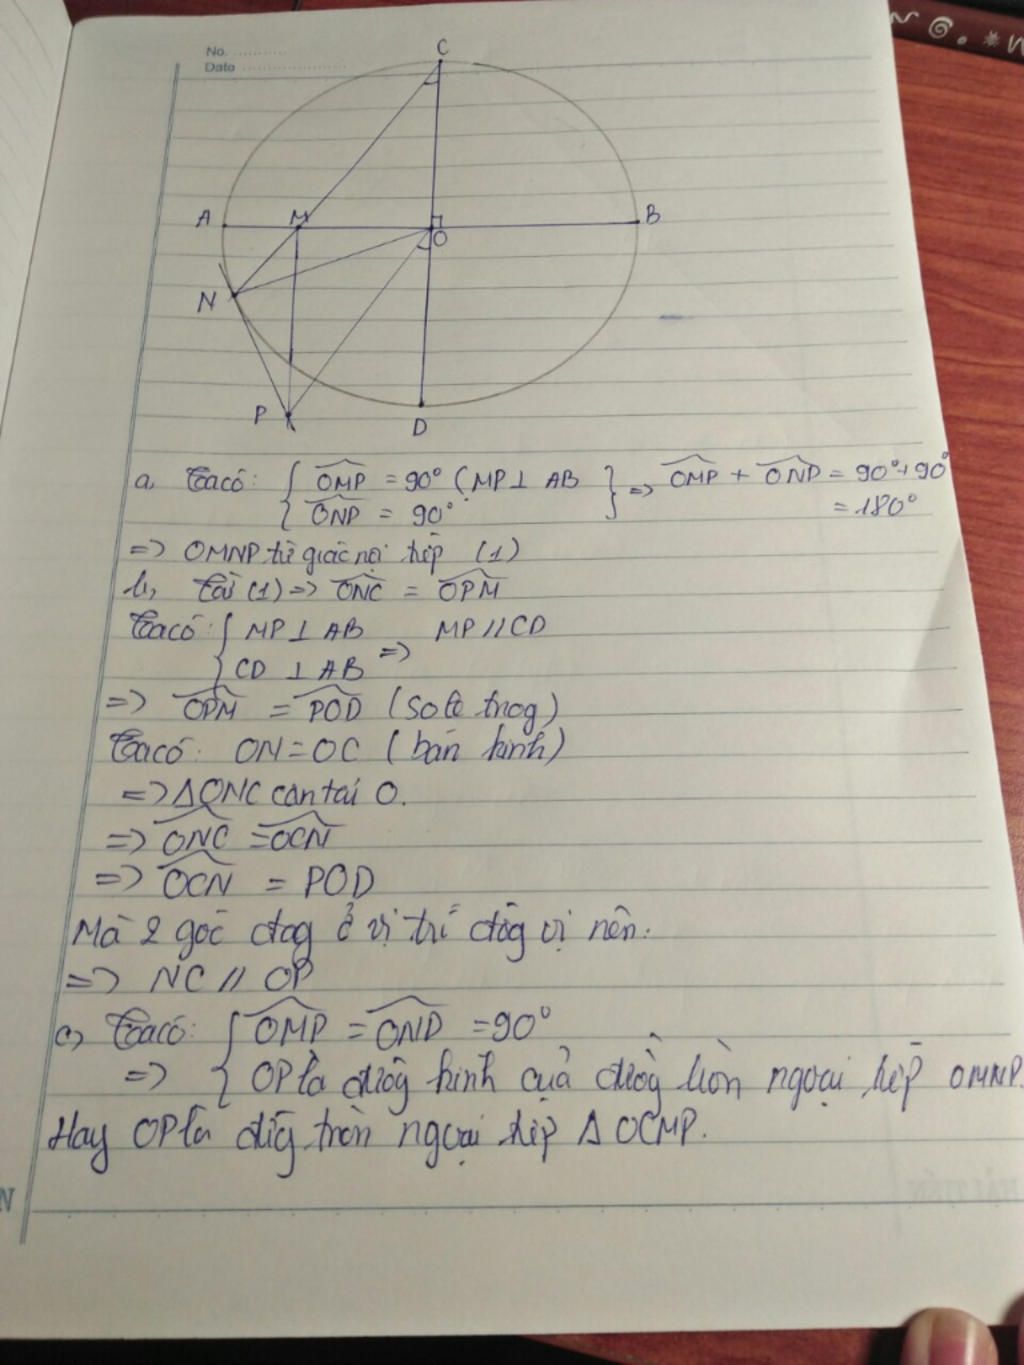 No.
Date
C
A M O B
N
P
D
a, Ta có: { OMP = 90° (MP ⊥ AB } => OMP + OND = 90° + 90°
ONP = 90° = 180°
=> OMNP tứ giác nội tiếp (1)
b, Từ (1) => ONC = OPM
Ta có: { MP ⊥ AB => MP // CD
CD ⊥ AB
=> OPM = POD (so le trog)
Ta có: ON = OC (bán kính)
=> Δ ONC cân tại O.
=> ONC = OCN
=> OCN = POD
Mà 2 góc đag ở vị trí đồg vị nên.
=> NC // OP
c, Ta có: { OMP = OND = 90°
=> { OP là đườg kính của đườg tròn ngoại tiếp OMNP.
Hay OP là đtròn ngoại tiếp Δ OCMP.
N